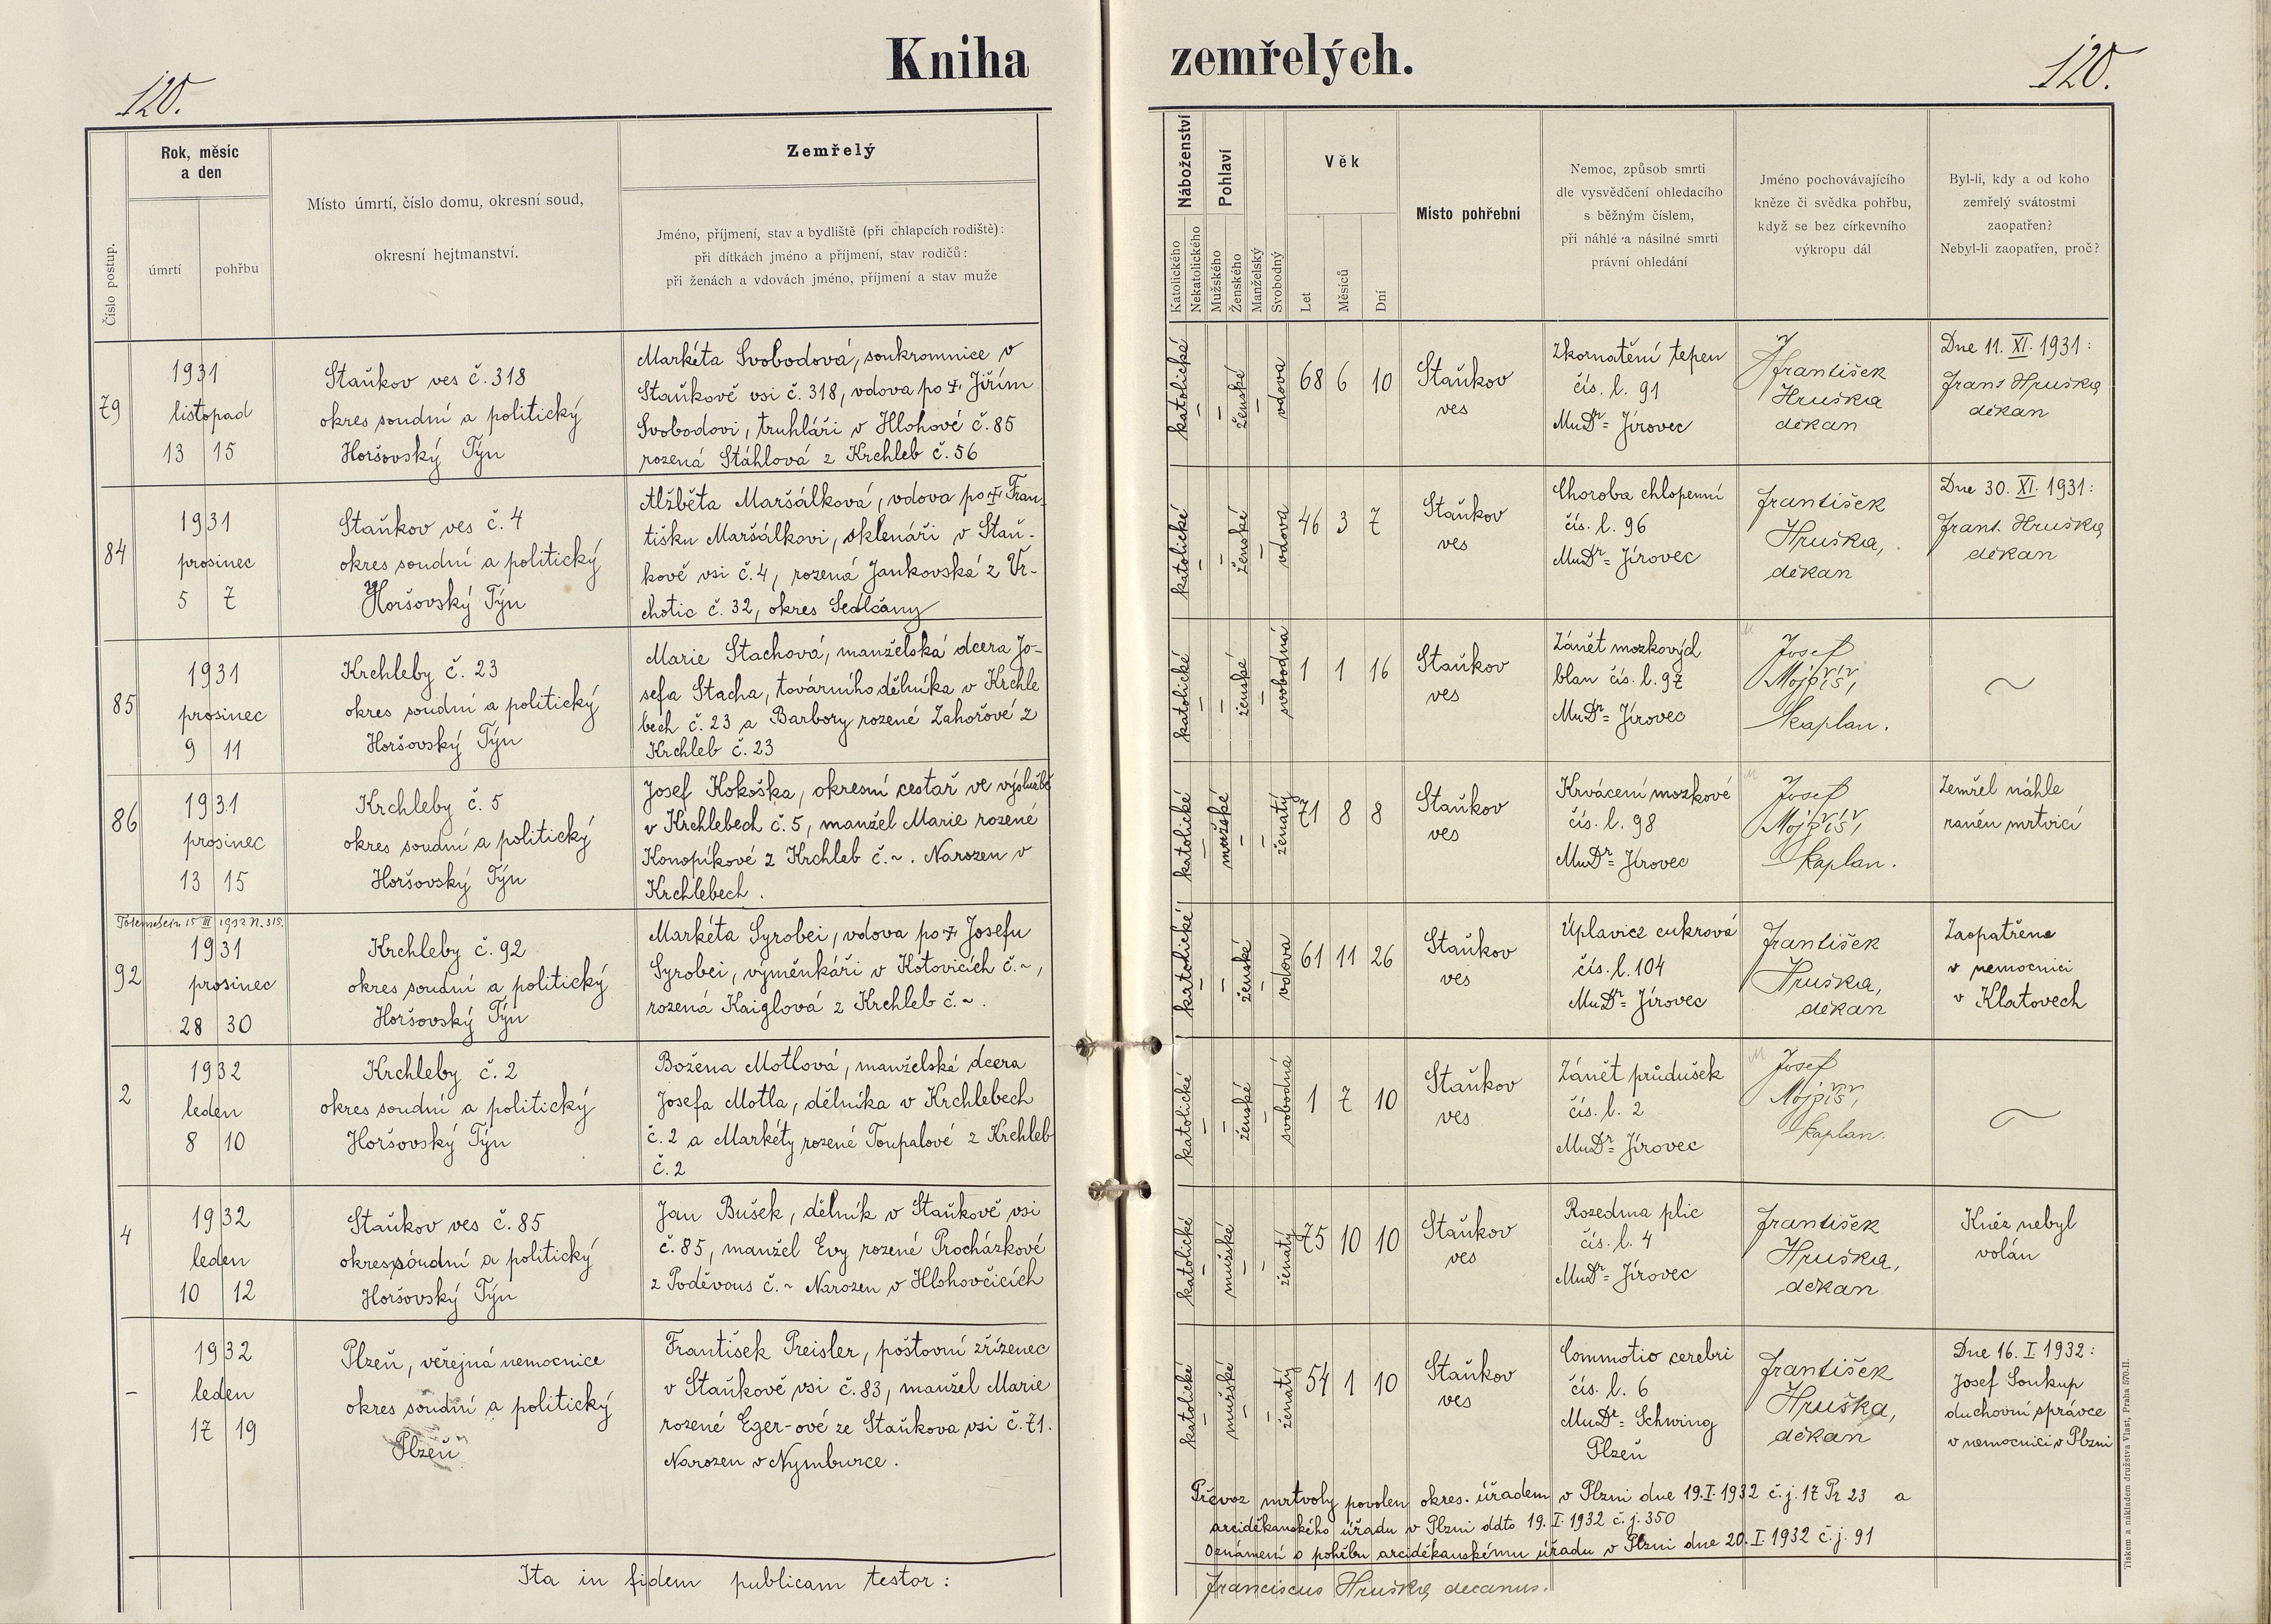 120.
Kniha
zemřelých.
120.
Číslo postup.
Rok, měsíc
a den
úmrtí
pohřbu
Místo úmrtí, číslo domu, okresní soud,
okresní hejtmanství.
Zemřelý
Jméno, příjmení, stav a bydliště (při chlapcích rodiště):
při dítkách jméno a příjmení, stav rodičů:
při ženách a vdovách jméno, příjmení a stav muže
Náboženství
Katolického
Nekatolického
Pohlaví
Mužského
Ženského
Manželský
Svobodný
Věk
Let
Měsíců
Dní
Místo pohřební
Nemoc, způsob smrti
dle vysvědčení ohledacího
s běžným číslem,
při náhlé a násilné smrti
právní ohledání
Jméno pochovávajícího
kněze či svědka pohřbu,
když se bez církevního
výkropu dál
Byl-li, kdy a od koho
zemřelý svátostmi
zaopatřen?
Nebyl-li zaopatřen, proč?
79
1931
listopad
13 15
Staňkov ves č. 318
okres soudní a politický
Horšovský Týn
Markéta Svobodová, soukromnice v
Staňkově vsi č. 318, vdova po † Jiřím
Svobodovi, truhláři v Hlohové č. 85
rozená Stáhlová z Krchleb č. 56
katolické
–
–
ženské
–
vdova
68 6 10
Staňkov
ves
Zkornatění tepen
čís. l. 91
MuDr= Jírovec
František
Hruška
děkan
Dne 11. XI. 1931:
Frant Hruška,
děkan
84
1931
prosinec
5 7
Staňkov ves č. 4
okres soudní a politický
Horšovský Týn
Alžběta Maršálková, vdova po † Fran-
tišku Maršálkovi, sklenáři v Staň-
kově vsi č. 4, rozená Jankovská z Vr-
chotic č. 32, okres Sedlčany
katolické
–
–
ženské
–
vdova
46 3 7
Staňkov
ves
Choroba chlopenní
čís. l. 96
MuDr= Jírovec
František
Hruška,
děkan
Dne 30. XI. 1931:
Frant. Hruška,
děkan
85
1931
prosinec
9 11
Krchleby č. 23
okres soudní a politický
Horšovský Týn
Marie Stachová, manželská dcera Jo-
sefa Stacha, továrního dělníka v Krchle
bech č. 23 a Barbory rozené Zahořové z
Krchleb č. 23
katolické
–
–
ženské
–
svobodná
1 1 16
Staňkov
ves
Zánět mozkových
blan čís. l. 97
MuDr= Jírovec
Josef
Mojžíš,
kaplan.
~
86
1931
prosinec
13 15
Krchleby č. 5
okres soudní a politický
Horšovský Týn
Josef Kokoška, okresní cestář ve výslužbě
v Krchlebech č. 5, manžel Marie rozené
Konopíkové z Krchleb č. ~. Narozen v
Krchlebech.
katolické
–
mužské
–
ženatý
71 8 8
Staňkov
ves
Krvácení mozkové
čís. l. 98
MuDr= Jírovec
Josef
Mojžíš,
kaplan.
Zemřel náhle
raněn mrtvicí
15 III 1932 N. 315.
92
1931
prosinec
28 30
Krchleby č. 92
okres soudní a politický
Horšovský Týn
Markéta Syrobei, vdova po † Josefu
Syrobei, výměnkáři v Kotovicích č. ~,
rozená Kaiglová z Krchleb č. ~.
katolické
–
–
ženské
–
vdova
61 11 26
Staňkov
ves
Úplavice cukrová
čís. l. 104
MuDr= Jírovec
František
Hruška,
děkan
Zaopatřena
v nemocnici
v Klatovech
2
1932
leden
8 10
Krchleby č. 2
okres soudní a politický
Horšovský Týn
Božena Motlová, manželská dcera
Josefa Motla, dělníka v Krchlebech
č. 2 a Markéty rozené Toupalové z Krchleb
č. 2
katolické
–
–
ženské
–
svobodná
1 7 10
Staňkov
ves
Zánět průdušek
čís. l. 2
MuDr= Jírovec
Josef
Mojžíš,
kaplan.
~
4
1932
leden
10 12
Staňkov ves č. 85
okres soudní a politický
Horšovský Týn
Jan Bušek, dělník v Staňkově vsi
č. 85, manžel Evy rozené Procházkové
z Poděvous č. ~ Narozen v Hlohovčicích
katolické
–
mužské
–
–
ženatý
75 10 10
Staňkov
ves
Rozedma plic
čís. l. 4
MuDr= Jírovec
František
Hruška,
děkan
Kněz nebyl
volán
–
1932
leden
17 19
Plzeň, veřejná nemocnice
okres soudní a politický
Plzeň
František Preisler, poštovní zřízenec
v Staňkově vsi č. 83, manžel Marie
rozené Eger-ové ze Staňkova vsi č. 71.
Narozen v Nymburce.
katolické
–
mužské
–
–
ženatý
54 1 10
Staňkov
ves
Commotio cerebri
čís. l. 6
MuDr= Schwing
Plzeň
František
Hruška,
děkan
Dne 16. I. 1932:
Josef Soukup
duchovní správce
v nemocnici v Plzni
Převoz mrtvoly povolen okres. úřadem v Plzni dne 19. I. 1932 č. j. 17 Pr 23 a
arciděkanského úřadu v Plzni ddto 19. I. 1932 č. j. 350
Oznámení o pohřbu arciděkanskému úřadu v Plzni dne 20. I. 1932 č. j. 91
Ita in fidem publicam testor:
Franciscus Hruška, decanus.
Tiskem a nákladem družstva Vlast, Praha 570-II.